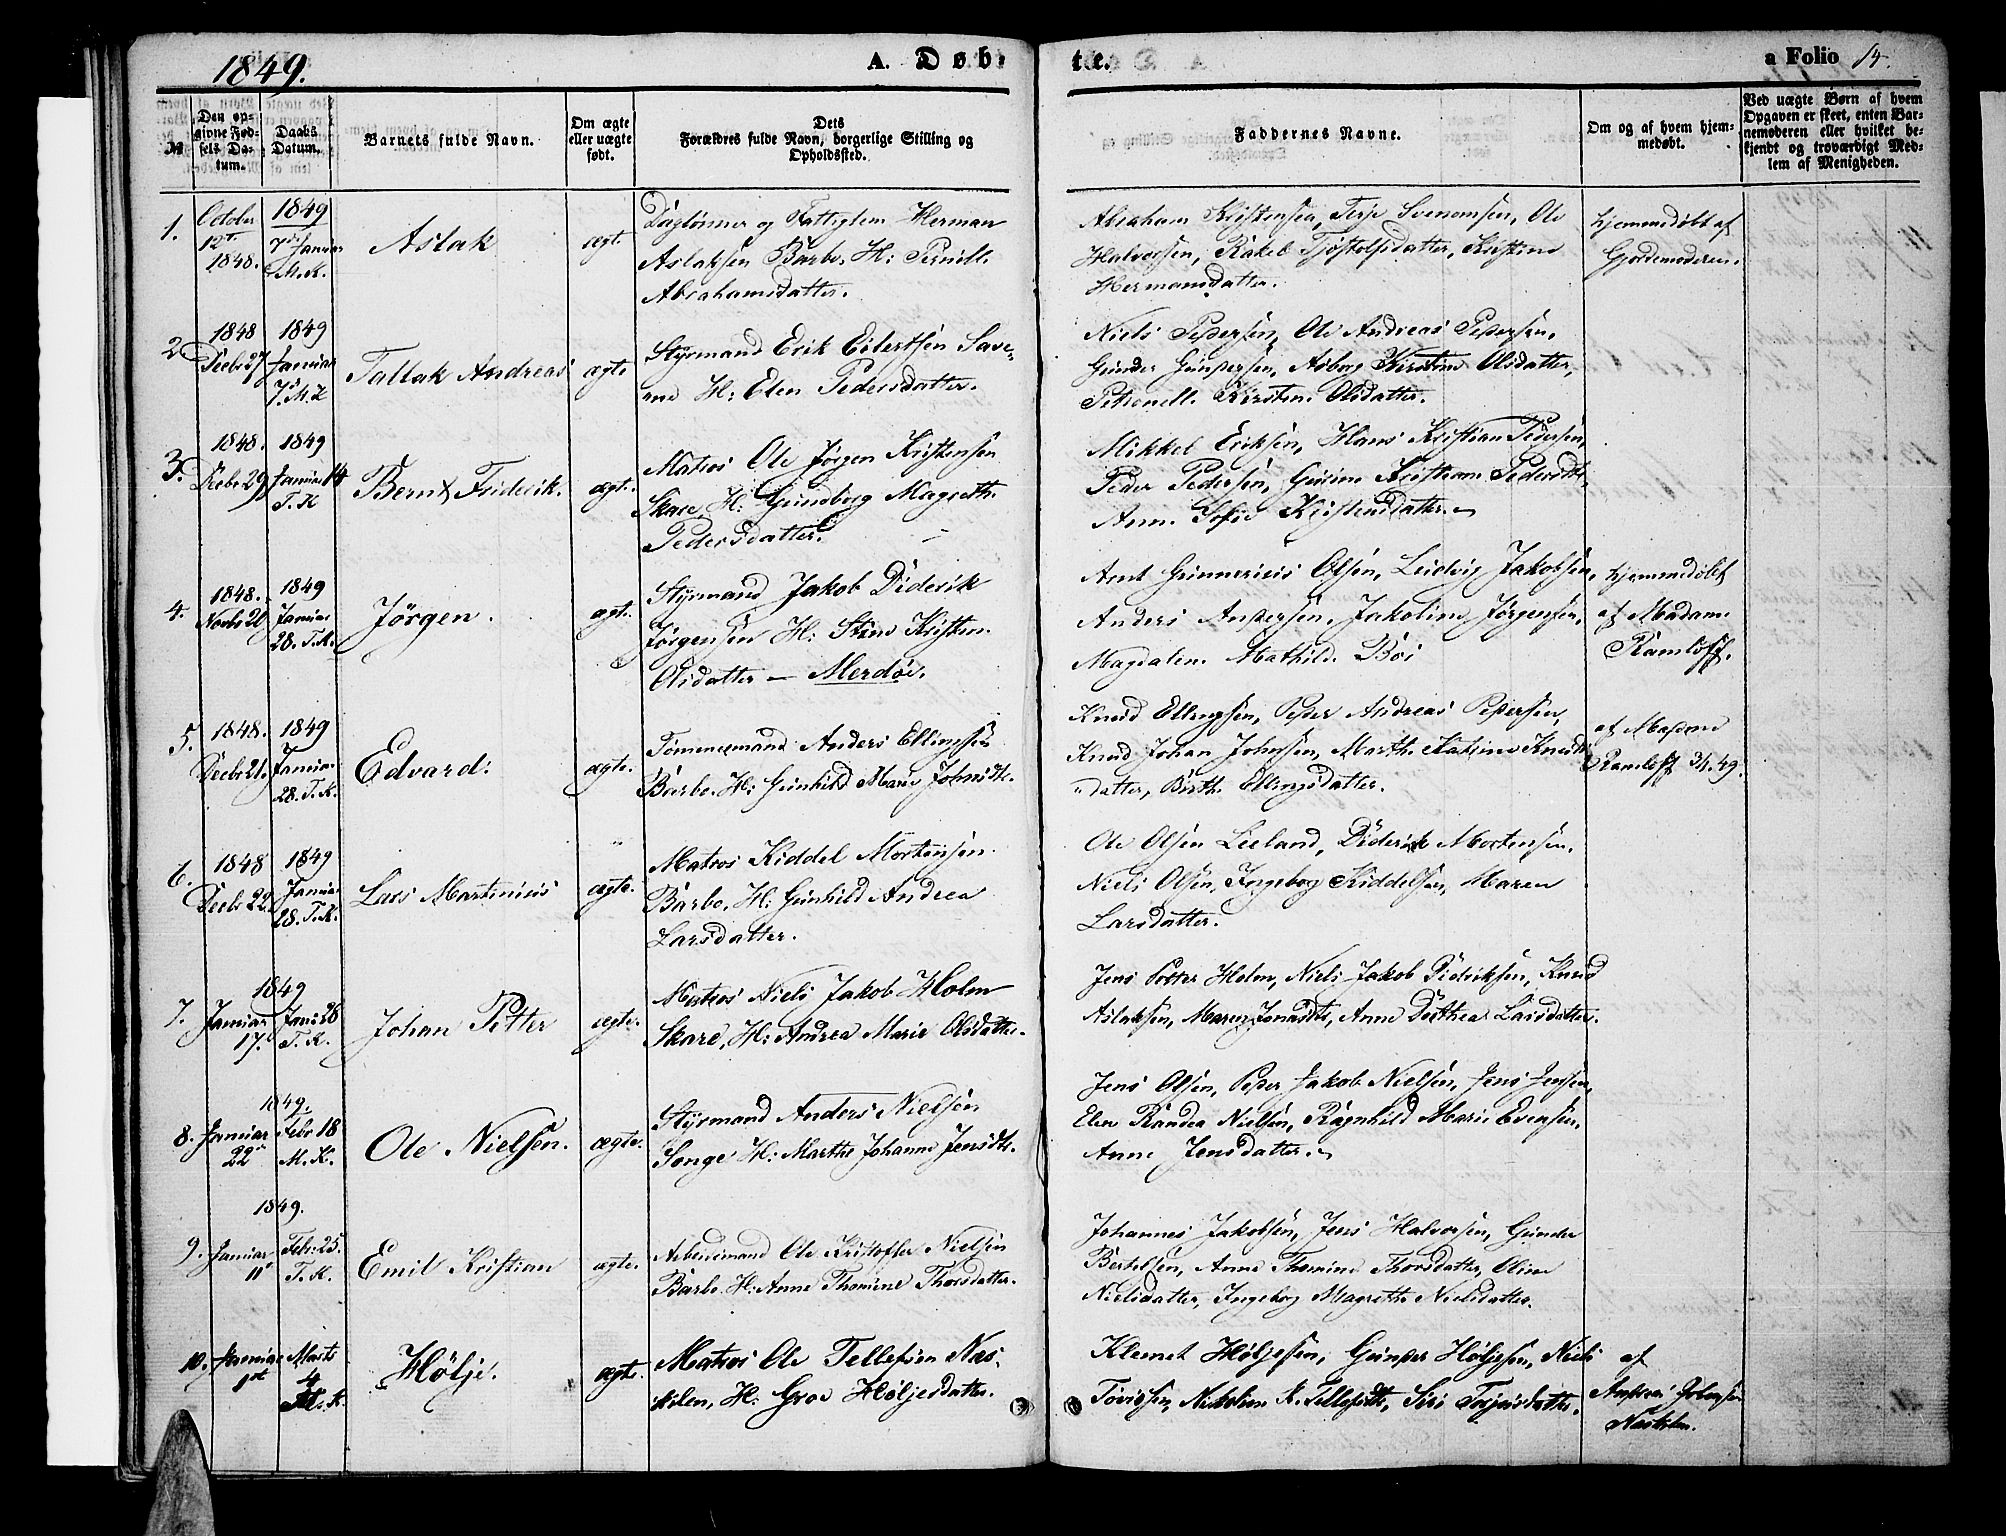 1849.
A. Døb-
te.
a Folio 14.
№
Den op-
givne Fød-
sels Da-
tum.
Daabs
Datum.
Barnets fulde Navn.
Om ægte
eller uægte
født.
Dets
Forældres fulde Navn, borgerlige Stilling og
Opholdssted.
Faddernes Navne.
Om og af hvem hjem-
medøbt.
Ved uægte Børn af hvem
Opgaven er skeet, enten Bar-
nemoderen eller hvilket be-
kjendt og troværdigt Med-
lem af Menigheden.
1.
October
12te
1848.
1849
7de Januar
M.K.
Aslak
ægt.
Daglønner og Fattiglem Herman
Aslaksen Barbo. H: Pernille
Abrahamsdatter.
Abraham Kristensen, Terje Svenomsen, Ole
Halvorsen, Rakel Tjøstolfsdatter, Kristine
Hermansdatter.
hjemmedøbt af
Gjordemoderen.
2
1848
Decbr 27
1849
Januar
7. M.K
Tallak Andreas
ægte
Styrmand Erik Eilertsen Save-
ene H: Elen Pedersdatter.
Niels Pedersen, Ole Andreas Pedersen,
Gunder Gundersen, Asborg Kirstine Olsdatter,
Petronelle Kirstine Olsdatter.
3.
1848.
Decbr 29
1849
Januar 14
T.K
Bernt Friderik.
ægte.
Matros Ole Jørgen Kristensen
Skare, H: Gunborg Magrethe
Pedersdatter.
Mikkel Eriksen, Hans Kristian Pedersen,
Peder Pedersen, Kristiane Pedersdtr,
Anne Sofie Kristensdatter.
4.
1848.
Novbr 20
1849
Januar
28. T.K.
Jörgen.
ægte.
Styrmand Jakob Diderik
Jørgensen H: Stine Kristine
Olsdatter — Merdøe.
Arnt Gunnerius Olsen, Ludvig Jakobsen,
Anders Andersen, Jakoline Jørgensen,
Magdalene Mathilde Boi
hjemmedøbt
af Madam
Ramløff.
5.
1848.
Decbr 21
1849
Januar
28. T.K.
Edvard.
ægte.
Tømmermand Anders Ellingsen
Barbo. H: Gunhild Marie Johnsdtr.
Knud Ellingsen, Peder Andreas Pedersen,
Knud Johan Johnsen, Marthe Katrine Knuds-
datter, Birthe Ellingsdatter.
af Madame
Ramløff
6.
1848
Decbr 22
1849
Januar
28. T.K.
Lars Martinius
ægte.
Matros Kiddel Mortensen
Barbo, H: Gunhild Andrea
Larsdatter.
Ole Olsen Lieland, Diderik Mortensen,
Niels Olsen, Ingeborg Kiddelsen, Maren
Larsdatter.
7.
1849
Januar
17.
Janu 28
T.K.
Johan Petter
ægte.
Matros Niels Jakob Holm
Skare, H: Andrea Marie Olsdatter.
Jens Petter Holm, Niels Jakob Didriksen, Knud
Aslaksen, Maren Jonasdtr, Anne Dorthea Larsdatter.
8.
1849.
Januar
22
Febr 18
M.K.
Ole Nielsen.
ægte.
Styrmand Anders Nielsen
Songe H: Marthe Johanne Jensdtr.
Jens Olsen, Peder Jakob Nielsen, Jens Jensen,
Elen Randea Nielsen, Ragnhild Marie Evensen,
Anne Jensdatter.
9.
1849.
Januar
11
Febr: 25.
T.K.
Emil Kristian
ægte.
Arbeidsmand Ole Kristoffer Nielsen
Barbo. H: Anne Thomine Thorsdatter.
Johannes Jakobsen, Jens Halvorsen, Gunder
Bertelsen, Anne Thomine Thorsdatter, Oline
Nielsdatter, Ingeborg Magrethe Nielsdatter.
10.
Januar
1st
Marts
4
M.K
Höljé.
ægte.
Matros Ole Tellefsen Nas-
kilen, H: Groe Høljesdatter.
Klemet Høljesen, Gunder Høljesen, Niels
Nikoline K. Tellefsdtr, Siri Torjusdatter.
af
Anders Johnsen
Naskilen.